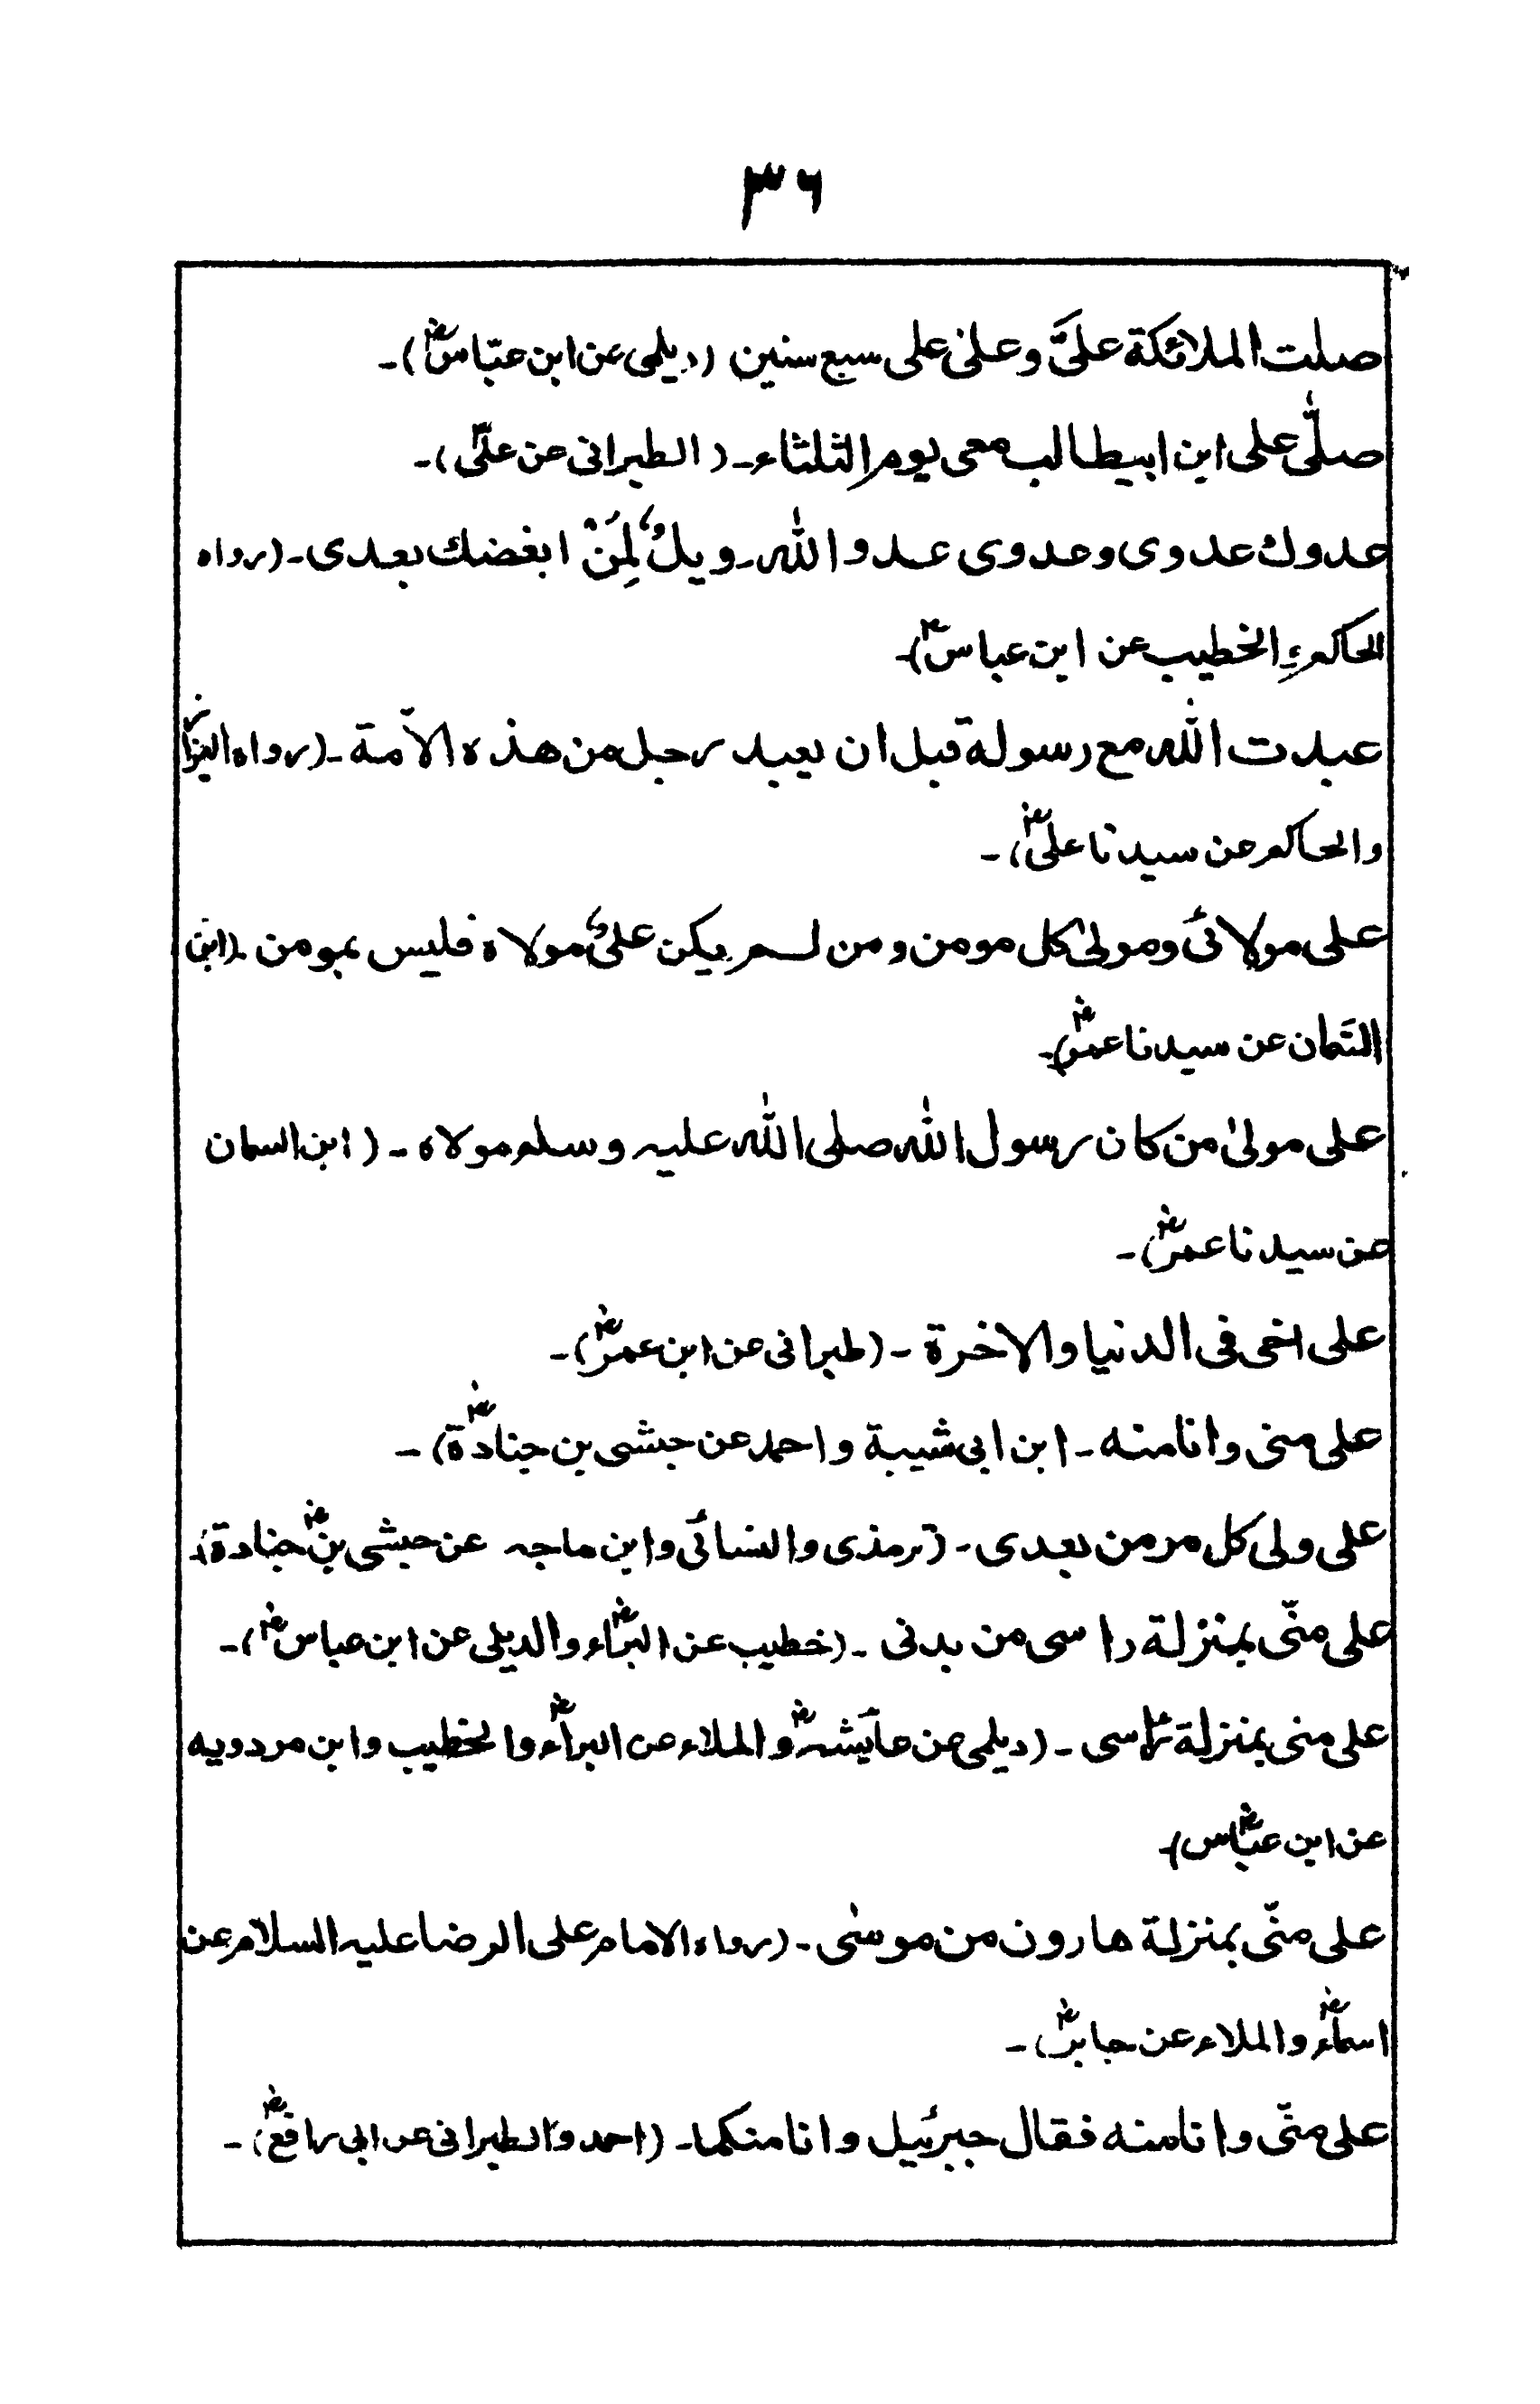 ۳۶
صلت الملائكة علیَّ وعلیٰ علی سبع سنین (دیلمی عن ابن عبّاسؓ)۔
صلّٰی علی ابن ابیطالب معی یوم الثلثاء۔ (الطبرانی عن علیؓ)۔
عدوك عدوی وعدوی عدو اللّٰه۔ ویلٌ لِمَنْ ابغضك بعدی۔ (رواہ
الحاكم والخطیب عن ابن عباسؓ)۔
عبدت اللّٰه مع رسولہٖ قبل ان یعبد رجل من هذه الاُمة۔ (رواہ البزار
والحاكم عن سیدنا علیؓ)۔
علی مولائی ومولیٰ كل مومن ومن لم یكن علیٌ مولاہ فلیس بمومن۔ (ابن
السَّمان عن سیدنا عمرؓ)۔
علی مولیٰ من كان رسول اللّٰه صلی اللّٰه علیہ وسلم مولاہ۔ (ابن السمان
عن سیدنا عمرؓ)۔
علی اخی فی الدنیا والاخرة۔ (طبرانی عن ابن عمرؓ)۔
علی منی وانا منه۔ ابن ابی شیبة واحمد عن حبشی بن جنادةؓ)۔
علی ولی كل مومن بعدی۔ (ترمذی والنسائی وابن ماجہ عن حبشی بنؓ جنادة)۔
علی منّی بمنزلة راسی من بدنی۔ (خطیب عن البراءؓ والدیلمی عن ابن عباسؓ)۔
علی منی بمنزلة راسی۔ (دیلمی عن عائشہؓ والملاء عن البراءؓ والخطیب وابن مردویه
عن ابن عبّاسؓ)۔
علی منّی بمنزلة هارون من موسیٰ۔ (رواہ الامام علی الرضا علیہ السلام عن
اسماءؓ والملاء عن جابرؓ)۔
علی منّی وانا منه فقال جبرئیل وانا منكما۔ (احمد والطبرانی عن ابی رافعؓ)۔